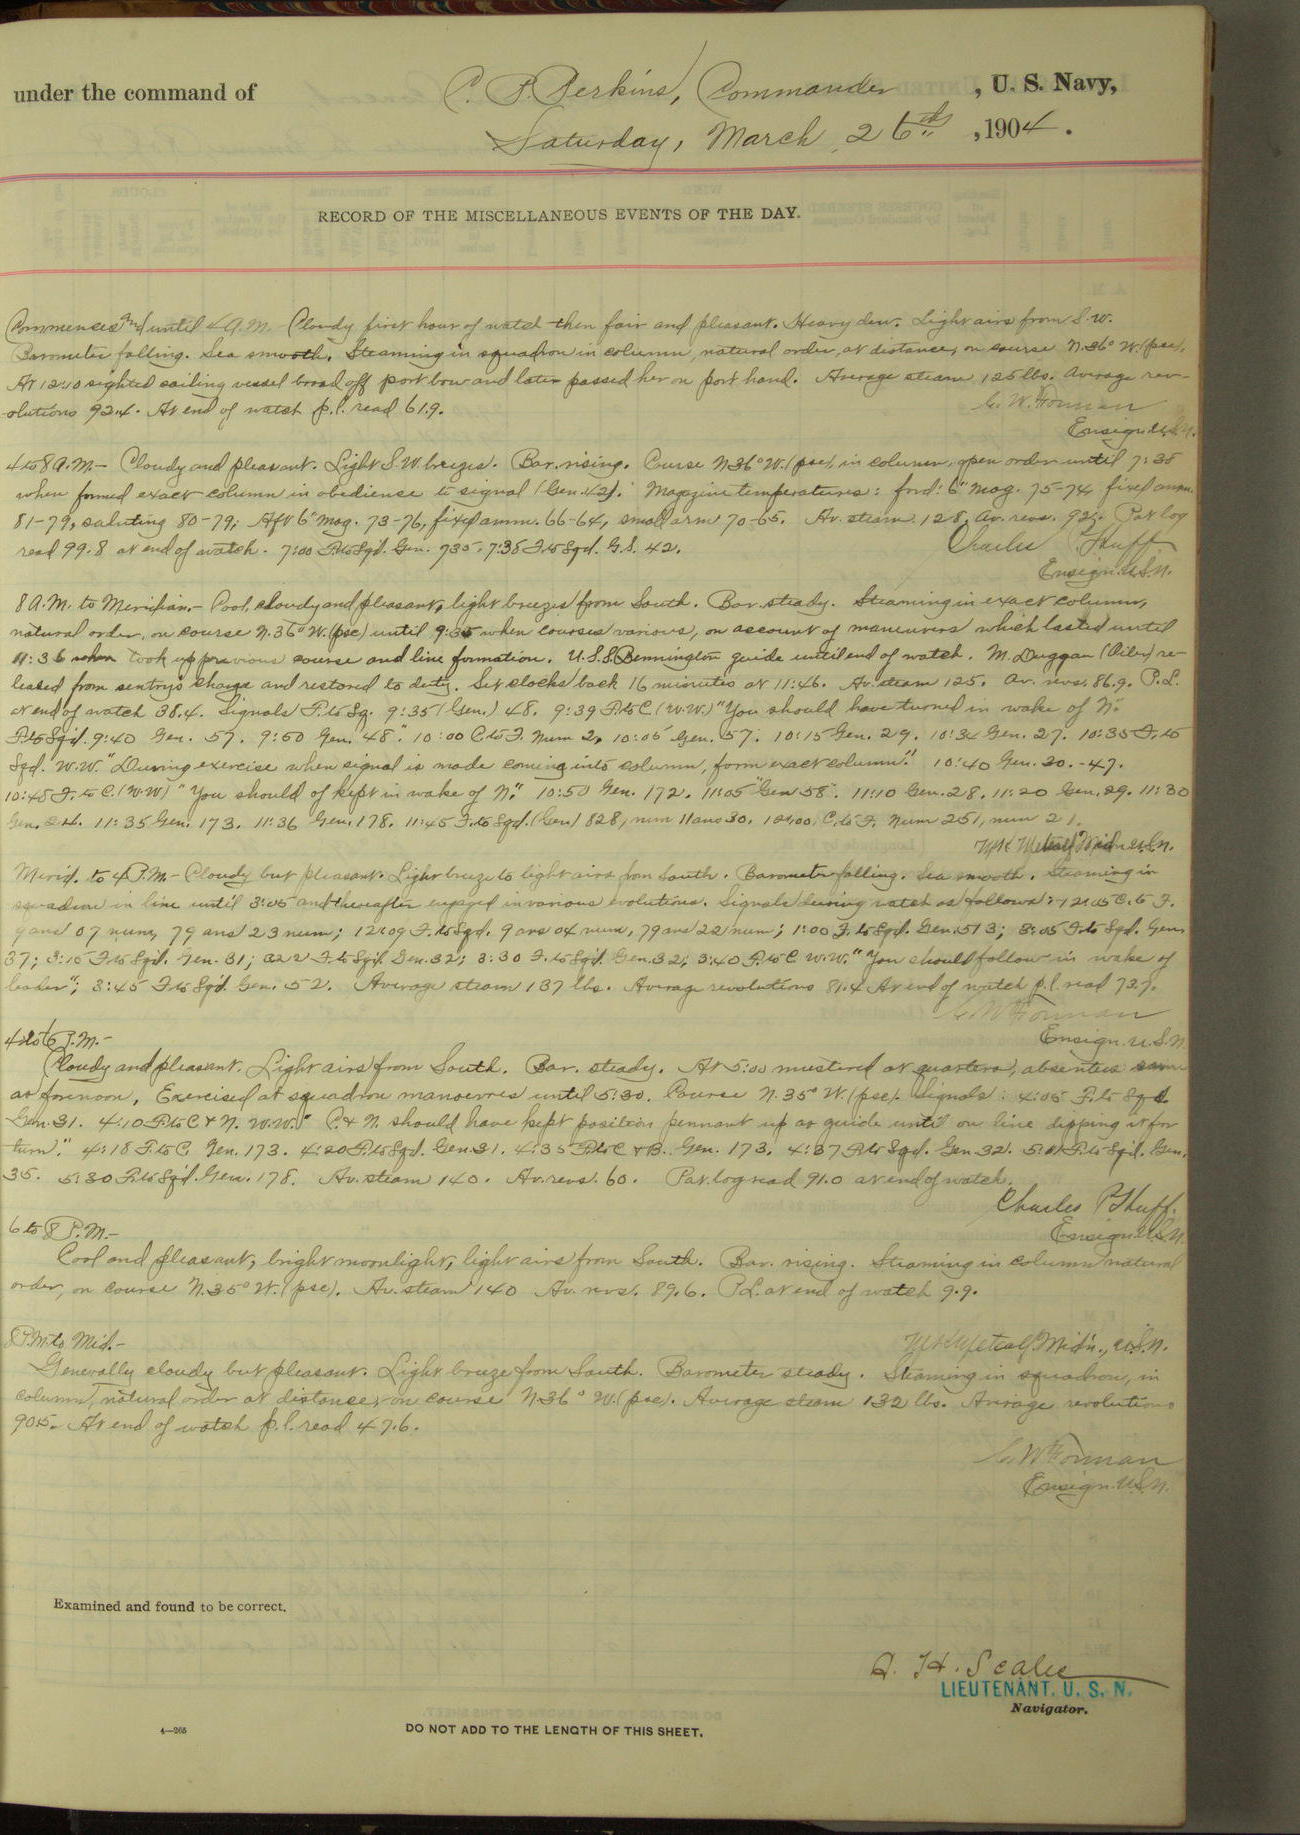 under the command of C. P. Perkins, Commander, U. S. Navy,
Saturday, March 26th, 1904.
RECORD OF THE MISCELLANEOUS EVENTS OF THE DAY.
Commences and until 4 A.M. Cloudy first hour of watch then fair and pleasant. Heavy dew. Light airs from S.W.
Barometer falling. Sea smooth. Steaming in squadron in column, natural order, at distance, on course N. 36° W. (psc).
At 12:10 sighted sailing vessel broad off port bow and later passed her on port hand. Average steam 125 lbs. Average rev-
olutions 92.4. At end of watch p.l. read 61.9.
C. W. Forman
Ensign U.S.N.
4 to 8 A.M.- Cloudy and pleasant. Light S.W. breezes. Bar. rising. Course N 36° W. (psc), in column, open order until 7:38
when formed exact column in obediense to signal (Gen. 42). Magazine temperatures: ford: 6" mag. 75-74, fixed amm.
81-79, saluting 80-79; Aft 6" mag. 73-76, fixed amm. 66-64, small arm 70-65. Av. steam 128, av. revs. 92. Pat log
read 99.8 at end of watch. 7:00 F. to Sqd. Gen. 735. 7:38 F. to Sqd. G.S. 42.
Charles P. Huff
Ensign U.S.N.
8 A.M. to Meridian.- Cool, cloudy and pleasant, light breezes from South. Bar. steady. Steaming in exact column,
natural order, on course N. 36° W. (psc) until 9:35 when courses various, on account of maneuvers which lasted until
11:36 when took up previous course and line formation. U.S.S. Bennington guide until end of watch. M. Duggan (Oiler) re-
leased from sentry's charge and restored to duty. Set clocks back 16 minutes at 11:46. Av. steam 125. Av. revs. 86.9. P.L.
at end of watch 38.4. Signals F. to Sq. 9:35 (Gen.) 48. 9:39 F. to C. (W.W.) "You should have turned in wake of N."
F. to Sqd. 9:40 Gen. 57. 9:50 Gen. 48. 10:00 C. to F. Num 2. 10:05 Gen. 57. 10:15 Gen. 29. 10:34 Gen. 27. 10:35 F. to
Sqd. W.W. "During exercise when signal is made coming into column, form exact column." 10:40 Gen. 30.-47.
10:48 F. to C. (W.W) "You should of kept in wake of N." 10:50 Gen. 172. 11:05 Gen 58. 11:10 Gen. 28. 11:20 Gen. 29. 11:30
Gen. 24. 11:35 Gen. 173. 11:36 Gen. 178. 11:45 F. to Sqd. (Gen) 828, num 11 ans 30. 12:00 C. to F. Num 251, num 21.
Metcalf Mid'n U.S.N.
Merid. to 4 P.M.- Cloudy but pleasant. Light breeze to light airs from South. Barometer falling. Sea smooth. Steaming in
squadron in line until 3:05 and thereafter engaged in various evolutions. Signals during watch as follows:- 12:05 C. to F.
9 ans 07 num, 79 ans 23 num; 12:09 F. to Sqd. 9 ans 04 num, 79 ans 22 num; 1:00 F. to Sqd. Gen. 513; 3:05 F. to Sqd. Gen.
37; 3:15 F. to Sqd. Gen. 31; 3:22 F. to Sqd. Gen. 32; 3:30 F. to Sqd. Gen. 32; 3:40 F. to C. W.W. "You should follow in wake of
leader"; 3:45 F. to Sqd. Gen. 52. Average steam 137 lbs. Average revolutions 81.4 At end of watch p.l. read 73.7.
C. W. Forman
Ensign U.S.N.
4 to 6 P.M.-
Cloudy and pleasant. Light airs from South. Bar. steady. At 5:00 mustered at quarters, absentees same
as forenoon. Exercised at squadron manoevres until 5:30. Course N. 35° W. (psc). Signals: 4:05 F. to Sqd.
Gen. 31. 4:10 F. to C & N. W.W. "C. & N. should have kept position pennant up as guide until on line dipping it for
turn." 4:18 F. to C. Gen. 173. 4:20 F. to Sqd. Gen. 31. 4:35 F. to C & B. Gen. 173. 4:37 F. to Sqd. Gen. 32. 5:01 F. to Sqd. Gen.
35. 5:30 F. to Sqd. Gen. 178. Av. steam 140. Av. revs. 60. Pat. log read 91.0 at end of watch.
Charles P. Huff.
Ensign U.S.N.
6 to 8 P.M.-
Cool and pleasant, bright moonlight, light airs from South. Bar. rising. Steaming in column natural
order, on course N. 35° W. (psc). Av. steam 140 Av. revs. 89.6. P.L. at end of watch 9.9.
Metcalf, Mid'n., U.S.N.
8 P.M. to Mid.-
Generally cloudy but pleasant. Light breeze from South. Barometer steady. Steaming in squadron, in
column, natural order at distance, on course N 36° W. (psc). Average steam 132 lbs. Average revolutions
90.5. At end of watch p.l. read 47.6.
C. W. Forman
Ensign U.S.N.
Examined and found to be correct.
A. H. Scales
LIEUTENANT. U. S. N.
Navigator.
4—265
DO NOT ADD TO THE LENGTH OF THIS SHEET.